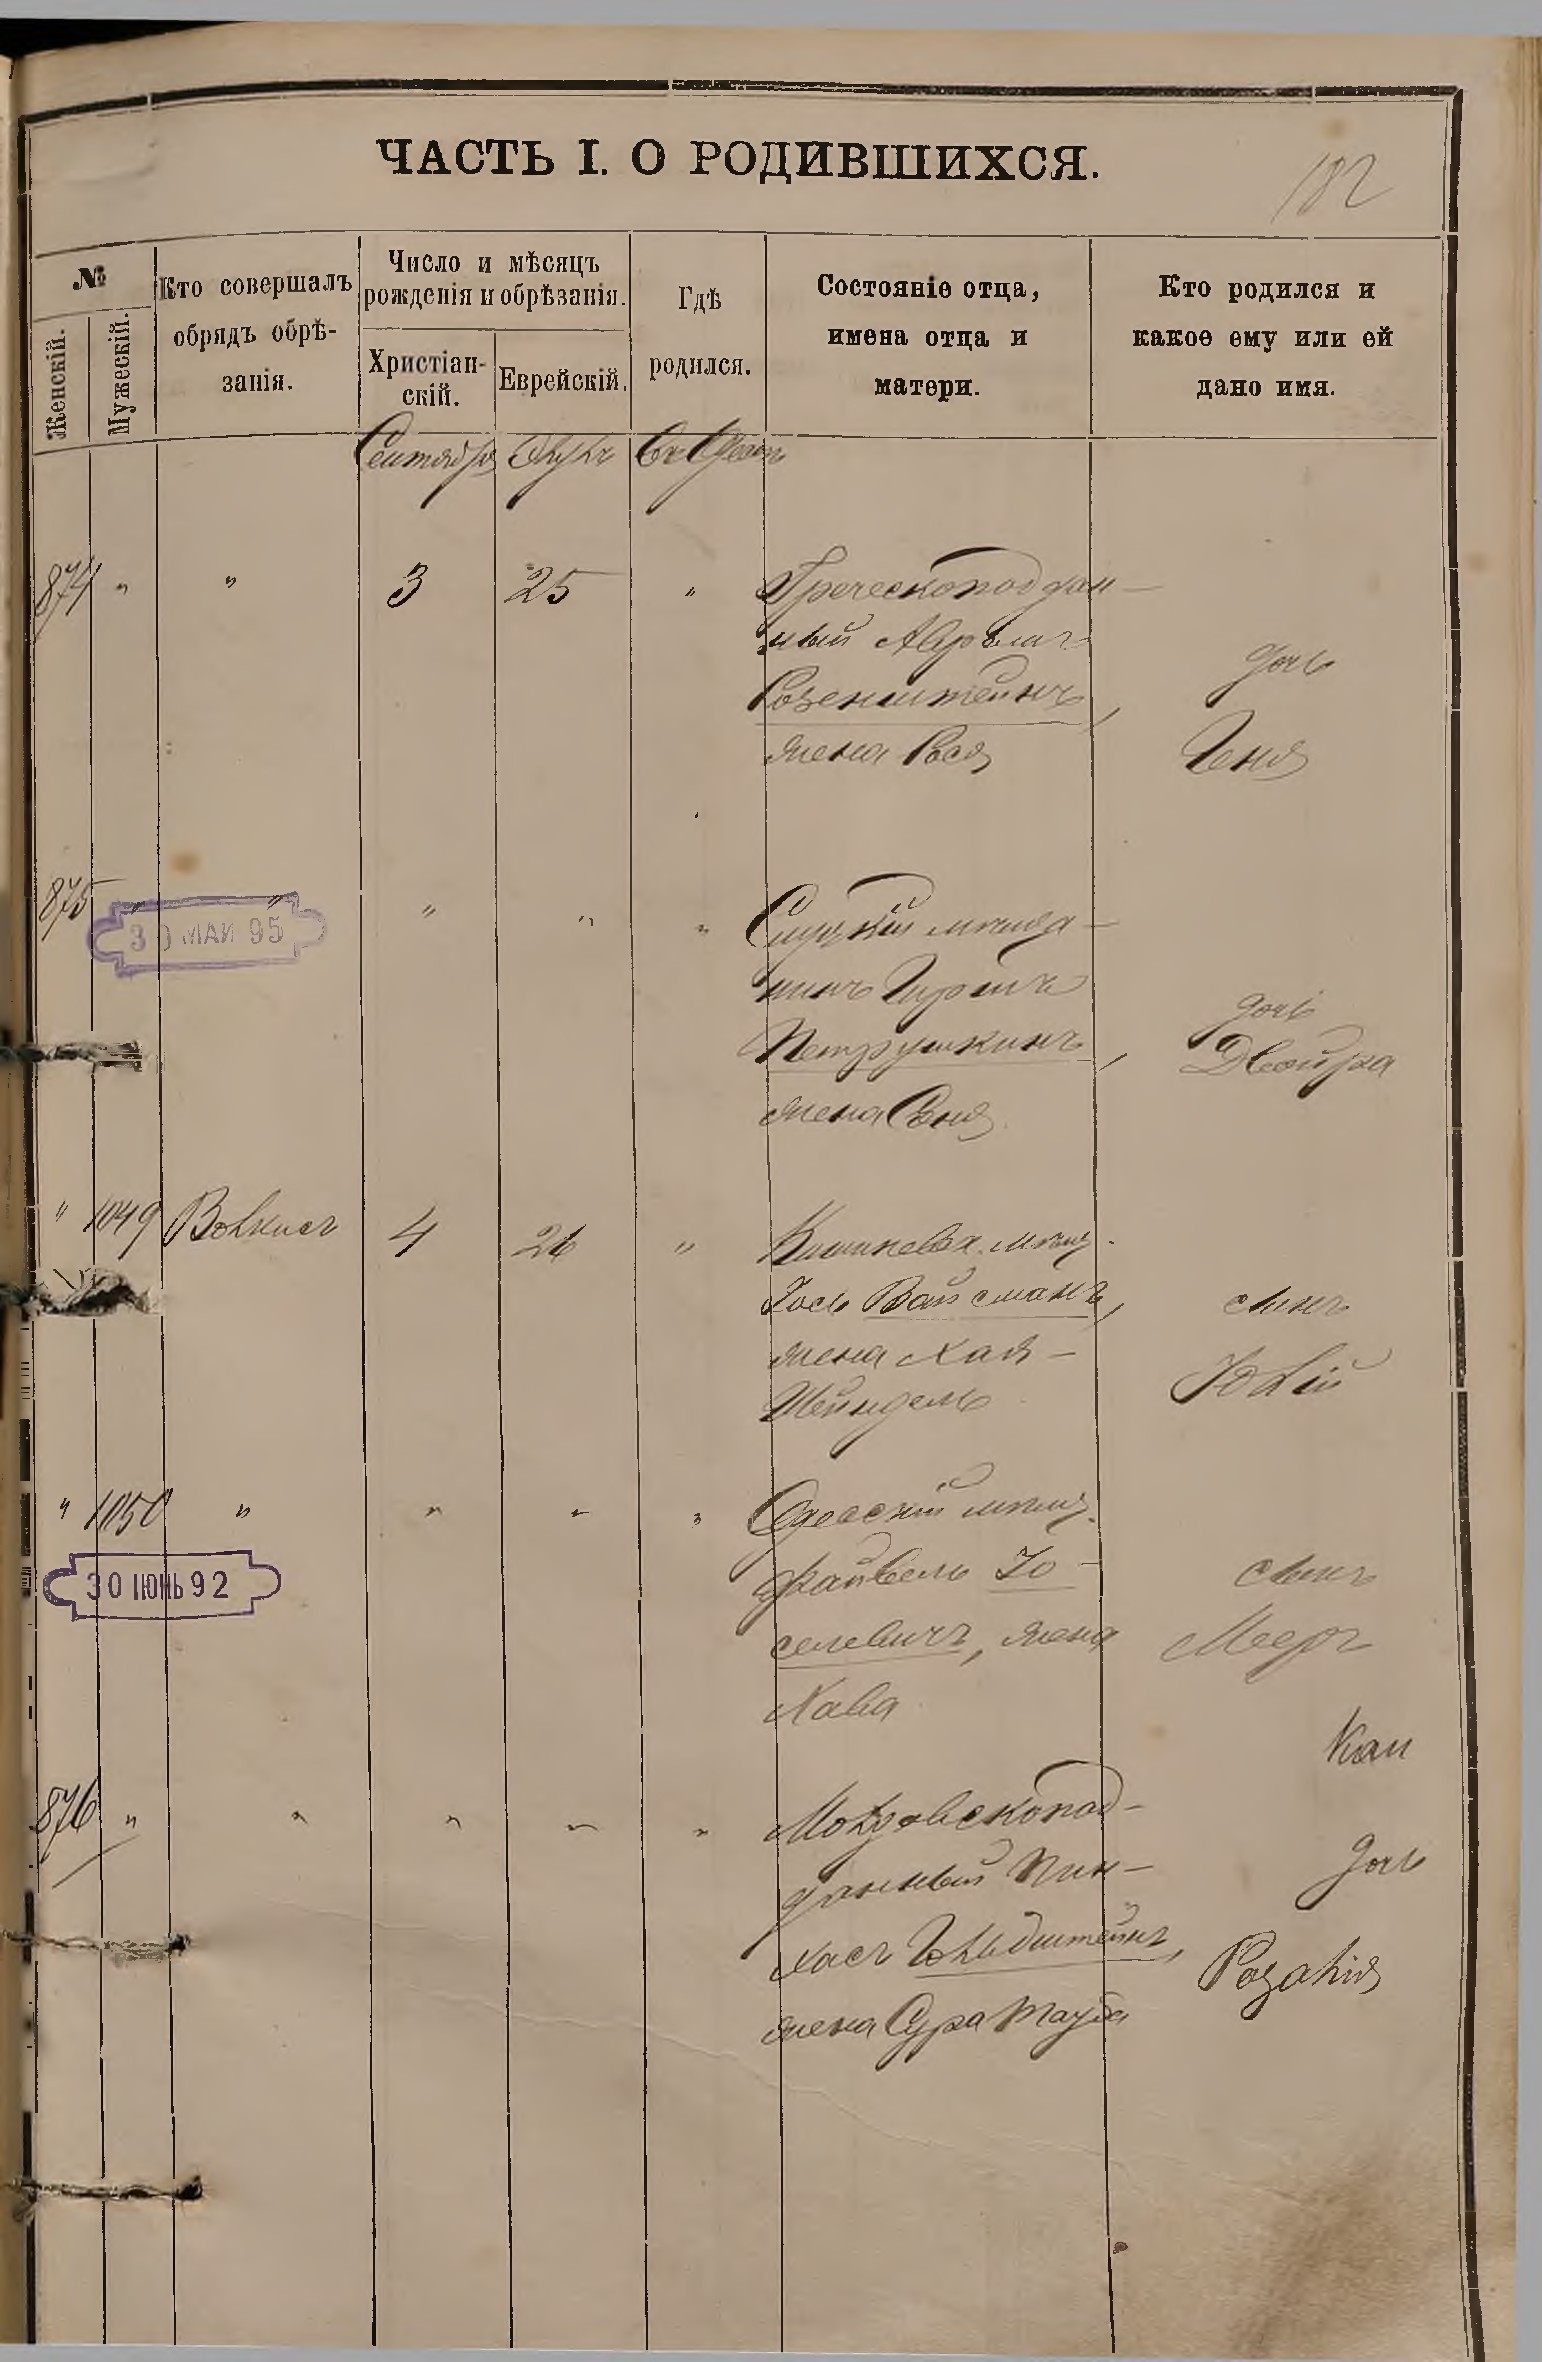 ЧАСТЬ I. О РОДИВШИХСЯ.
182
№
Женскій.
Мужескій.
Кто совершалъ
обрядъ обрѣ-
занія.
Число и мѣсяцъ
рожденія и обрѣзанія.
Христіан-
скій.
Еврейскій.
Гдѣ
родился.
Состояніе отца,
имена отца и
матери.
Кто родился и
какое ему или ей
дано имя.
Сентябрь Элулъ Въ Одессѣ
874 " " 3 25 " Греческоподдан-
ный Аврумъ
Розенштейнъ,
жена Рося
дочь
Геня
875 " " " " "
30 МАЙ 95
Слуцкій мѣща-
нинъ Гиршъ
Петрушкинъ,
жена Сеня
дочь
Двойра
" 1049 Волкисъ 4 26 " Кишиневск. мѣщ.
Іось Вайсманъ,
жена Хая-
Шейндель
сынъ
Юлій
" 1050 " " " "
30 ІЮНЬ 92
Одесскій мѣщ.
Файвель Іо-
селевичъ, жена
Хава
сынъ
Мееръ
876 " " " " " Молдавскопод-
данный Пин-
хасъ Гольдштейнъ,
жена Сура Тауба
дочь
Розалія